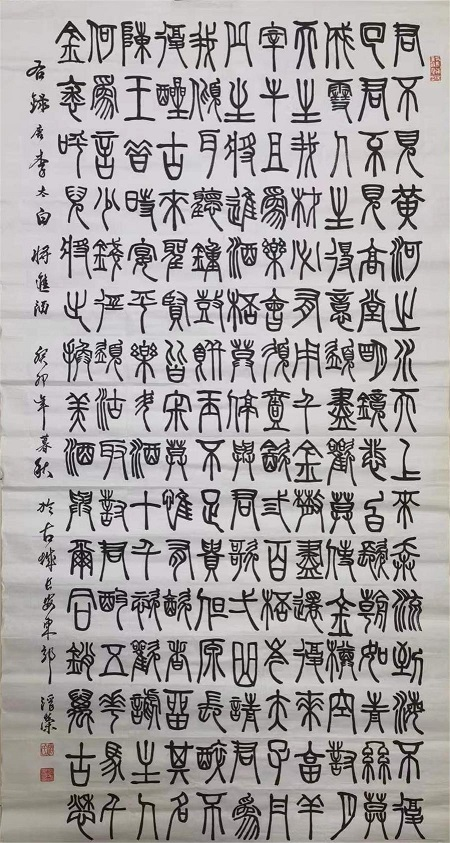 君不見黃河之水天上來奔流到海不復
回君不見高堂明鏡悲白髮朝如青絲莫
成雪人生得意須盡歡莫使金樽空對月
天生我材必有用千金散盡還復來烹羊
宰牛且為樂會須壹飲弎百杯岑夫子丹
丘生將進酒杯莫停與君歌弌曲請君為
我傾耳聽鐘鼓饌玉不足貴但願長醉不
復醒古來聖賢皆寂寞惟有飲者留其名
陳王昔時宴平樂斗酒十千恣歡謔主人
何為言少錢徑須沽取對君酌五花馬千
金裘呼兒將出換美酒與爾同銷萬古愁
右錄唐李太白將進酒 癸卯年暮秋於古城長安東郊